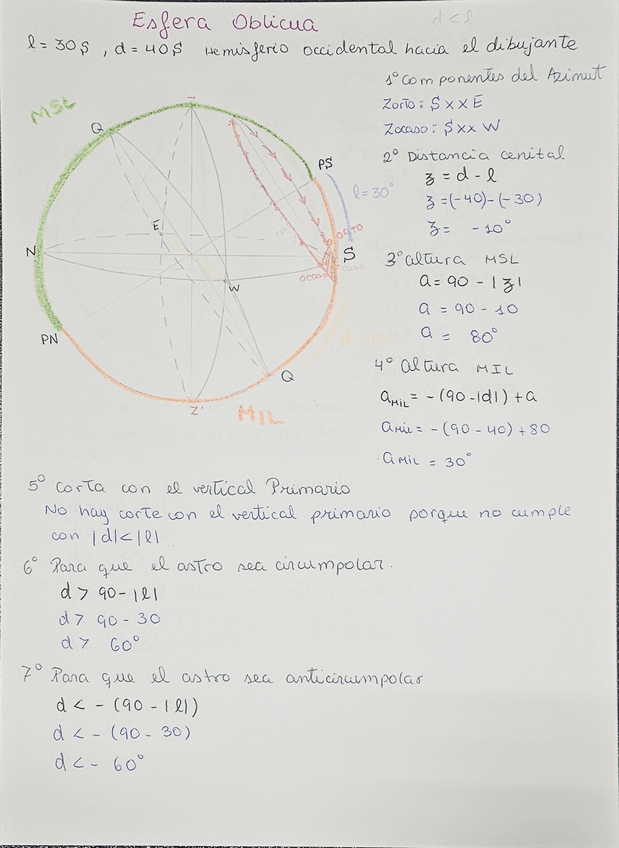 Esfera Oblicua
d < l
l = 30S, d = 40S Hemisferio occidental hacia el dibujante
1º Componentes del Azimut
Zorto: S x x E
Zocaso: S x x W
2º Distancia cenital
z = d - l
z = (-40) - (-30)
z = -10°
3º altura MSL
a = 90 - |z|
a = 90 - 10
a = 80°
4º Altura MIL
aMIL = -(90 - |d|) + a
aMIL = -(90 - 40) + 80
aMIL = 30°
MSL
Z
Q
PS
l = 30°
E
ORTO
N
S
OCASO
W
PN
Q
Z'
MIL
5º Corta con el vertical Primario
No hay corte con el vertical primario porque no cumple
con |d| < |l|
6º Para que el astro sea circumpolar.
d > 90 - |l|
d > 90 - 30
d > 60°
7º Para que el astro sea anticircumpolar
d < - (90 - |l|)
d < - (90 - 30)
d < - 60°